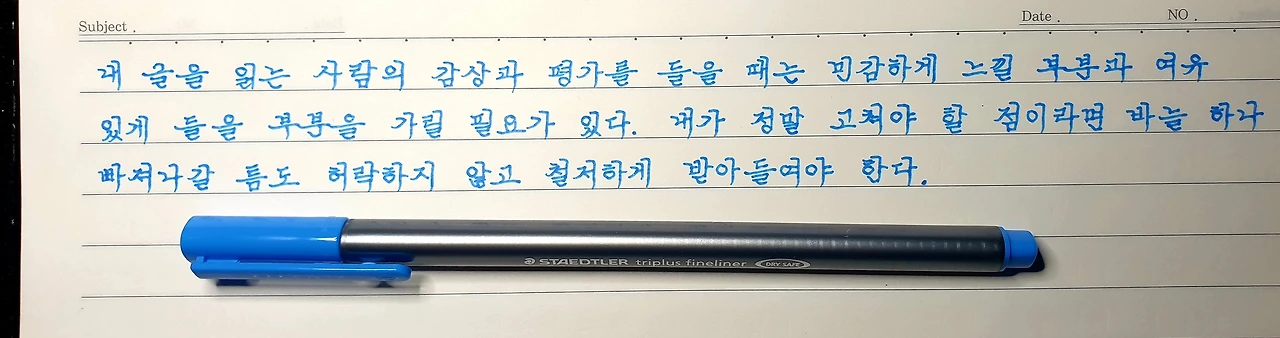 Subject .
Date .
NO .
내 글을 읽는 사람의 감상과 평가를 들을 때는 민감하게 느낄 부분과 여유
있게 들을 부분을 가릴 필요가 있다. 내가 정말 고쳐야 할 점이라면 바늘 하나
빠져나갈 틈도 허락하지 않고 철저하게 받아들여야 한다.
STAEDTLER triplus fineliner DRY SAFE